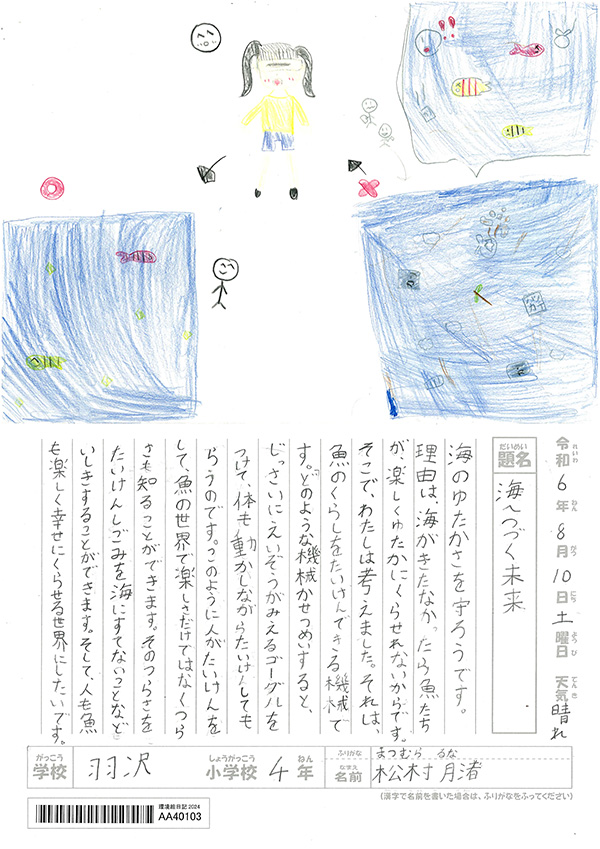 令和6年8月10日土曜日 天気晴れ
題名 海へつづく未来
海のゆたかさを守ろうです。
理由は、海がきたなかったら魚たち
が、楽しくゆたかにくらせれないからです。
そこで、わたしは考えました。それは、
魚のくらしをたいけんできる機械で
す。どのような機械かせつめいすると、
じっさいにえいぞうがみえるゴーグルを
つけて、体も動かしながらたいけんしても
らうのです。このように人がたいけんを
して、魚の世界で楽しさだけではなくつら
さも知ることができます。そのつらさを
たいけんしごみを海にすてないことなど
いしきすることができます。そして、人も魚
も楽しく幸せにくらせる世界にしたいです。
学校 羽沢 小学校 4年 名前 松村 月渚
がっこう しょうがっこう ねん ふりがな なまえ まつむら るな
(漢字で名前を書いた場合は、ふりがなをふってください)
環境絵日記2024
AA40103